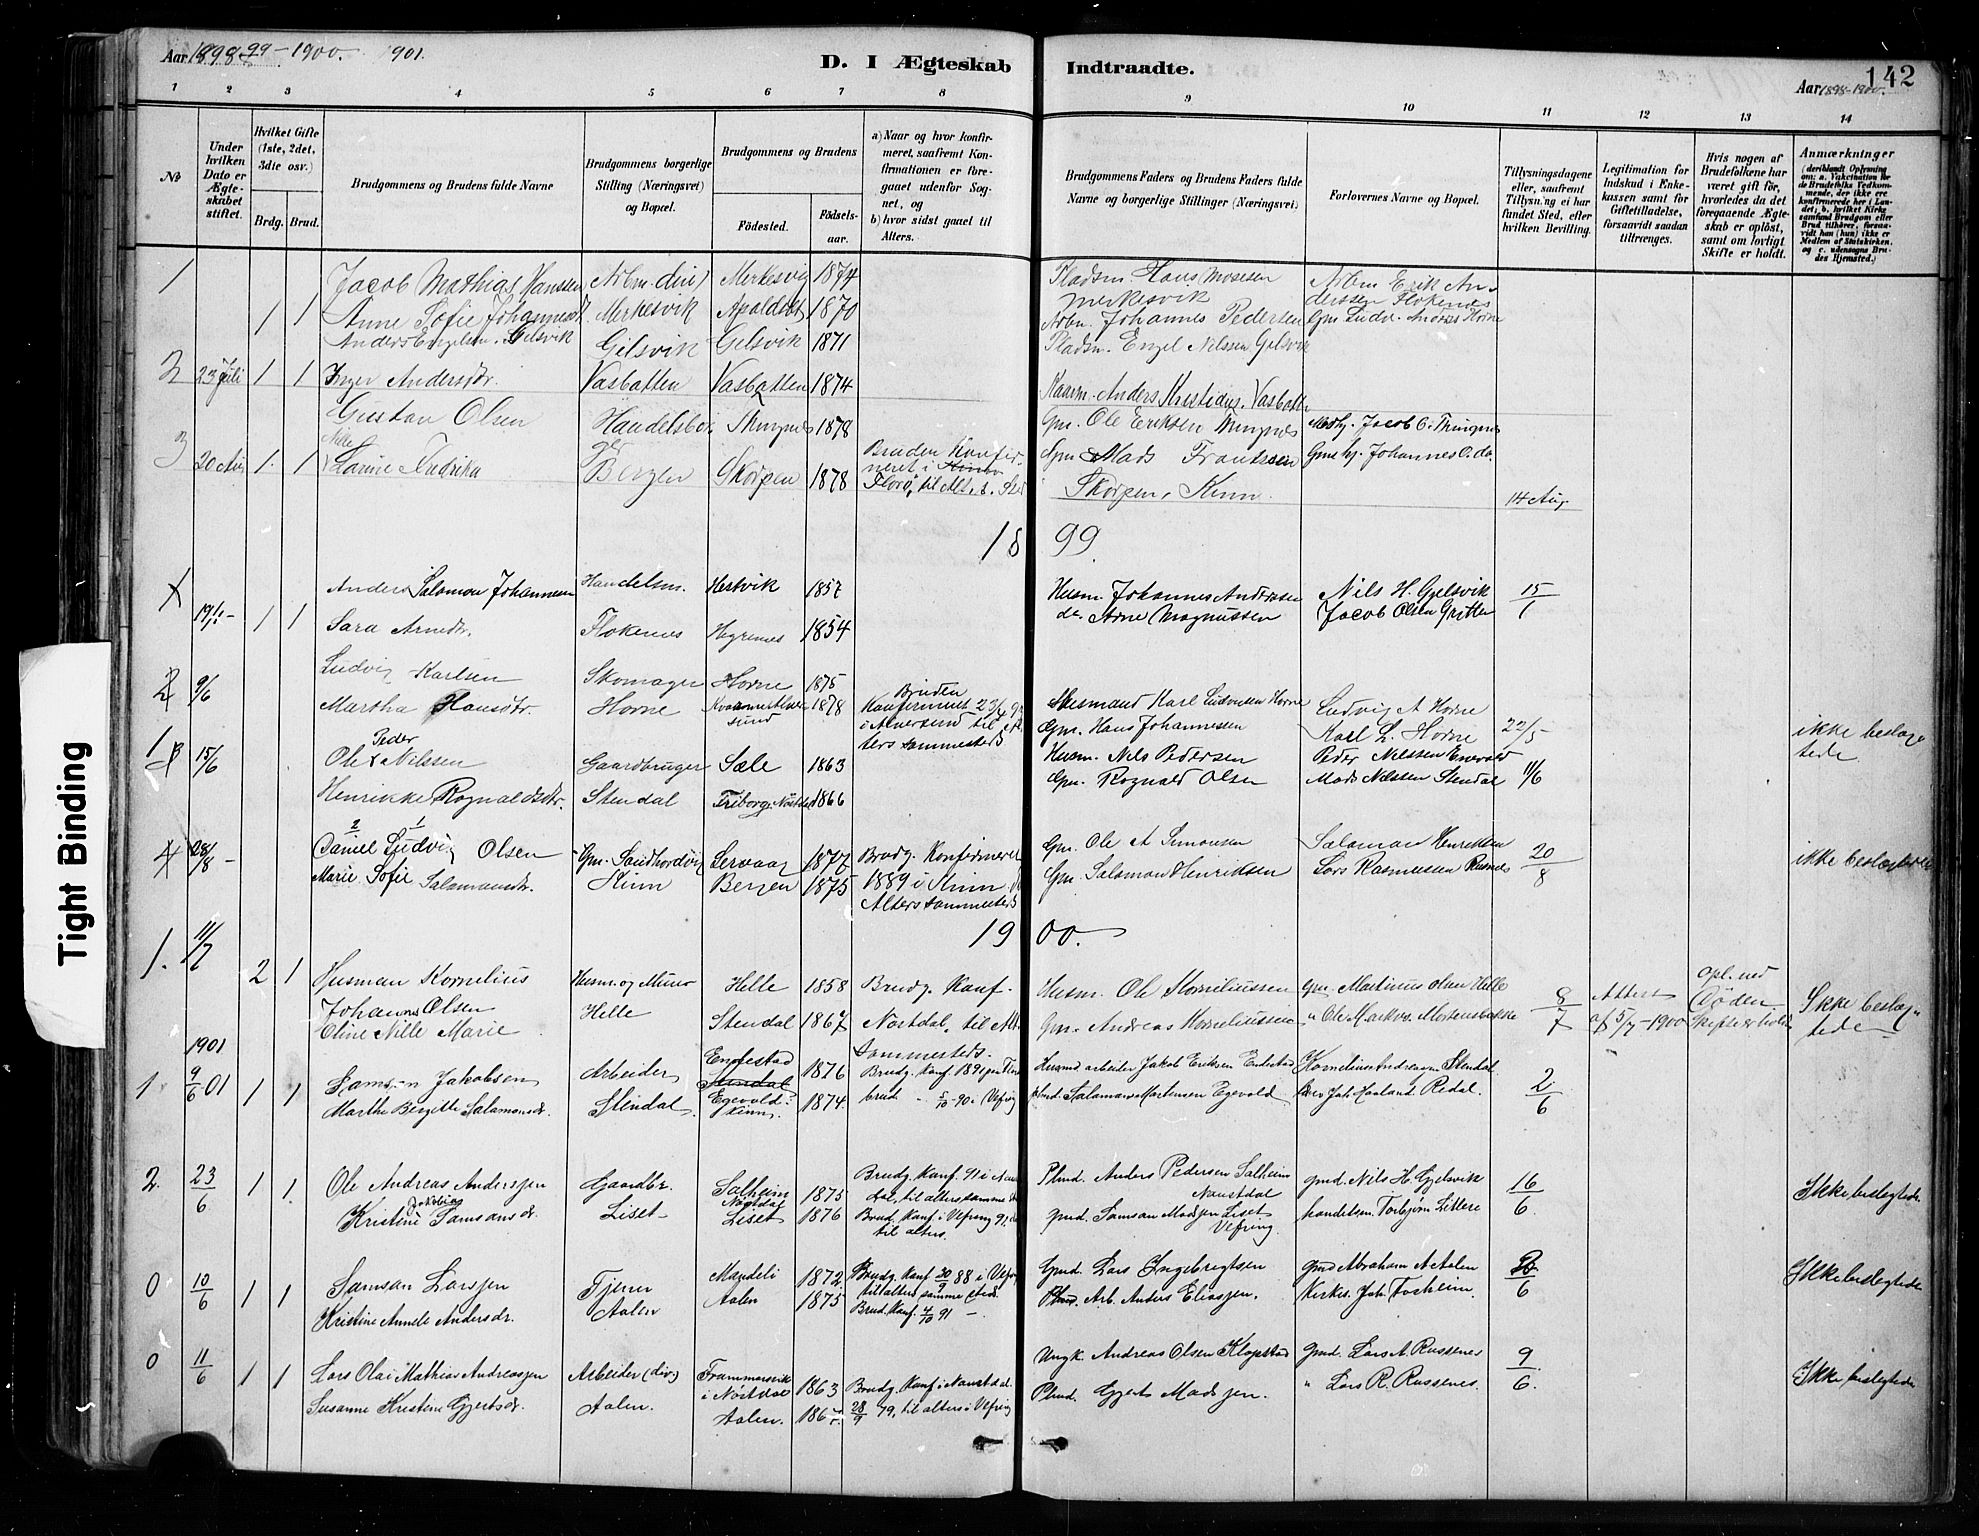 Aar 1898-99-1900. 1901.
D. I Ægteskab Indtraadte.
142
Aar 1898-1900.
1 2 3 4 5 6 7 8 9 10 11 12 13 14
No
Under hvilken Dato er Ægteskabet stiftet.
Hvilket Gifte (1ste, 2det, 3die osv.)
Brdg. Brud.
Brudgommens og Brudens fulde Navne
Brudgommens borgerlige Stilling (Næringsvei) og Bopæl.
Brudgommens og Brudens
Födested. Födselsaar.
a) Naar og hvor konfirmeret, saafremt Konfirmationen er foregaaet udenfor Sognet, og
b) hvor sidst gaaet til Alters.
Brudgommens Faders og Brudens Faders fulde Navne og borgerlige Stillinger (Næringsvei)
Forlovernes Navne og Bopæl.
Tillysningsdagene eller, saafremt Tillysning ei har fundet Sted, efter hvilken Bevilling.
Legitimation for Indskud i Enkekassen samt for Giftetilladelse, forsaavidt saadan tiltrænges.
Hvis nogen af Brudefolkene har været gift för, hvorledes da det foregaaende Ægteskab er oplöst, samt om lovligt Skifte er holdt.
Anmærkninger
1 Jacob Mathias Hanssen Arbm. div) Merkesvig 1874 Pladsm. Hans Mosesen Merkesvik Arbm Erik Anderssen Flokenes
1 1 Anne Sofie Johannesdt. Merkesvik Apaldset 1870 Arbm. Johannes Pedersen Gm Ludv. Andreas Horne
Anders Engelsen Gilsvik Gilsvik Gelsvik 1871 Pladsm. Engel Nilssen Gelsvik
2 23 Juli 1 1 Inger Andersdtr. Vasbotten Vasbotten 1874 Kaarm. Anders Kristians. Vasbotten
Gustav Olsen Handelsbet. Thingnes 1878 Gm. Ole Eriksen Thingnes Jacob O. Thingnes
3 20 Aug 1 1 Larine Fredrika Bergen Skorpen 1878 Bruden konfirmeret i Florø, til Alt. s. St. Gm Mads Frantssen Johannes O. do.
Skorpen, Kinn. 14 Aug
1899.
1 19/1 - 1 1 Anders Salomon Johannesen Handelsm. Hestvik 1857 Husm. Johannes Anderssen Nils H. Gjelsvik 15/1
Sara Arnedtr. Flokenes Hegrenes 1854 do. Arne Magnussen Jacob Olsen Gritten
2 9/6 Ludvig Karlsen Skomager Horne 1875 Karl Ludvigsen Horne Ludvig A Horne
Martha Hansdtr. Horne 1878 Bruden Konfirmeret i Alversund til Alters sammesteds Gm. Hans Johannessen Karl L. Horne 22/5
3 15/6 Ole Peder Nilssen Gaardbruger Sæle 1863 Husm. Nils Pedersen Peder Nilssen Engevold ikke beslægtede
Henrikke Rognaldsdtr. Stendal Friborg, Nøstdal 1866 Gm. Rognald Olsen Mads Nilssen Stendal 11/6
4 28/8 - Daniel Ludvig Olsen Gm. Sandhordvig Servaag 1877 Brudg. Konfirmeret 1889 i Kinn Alters sammesteds Gm. Ole A Simonsen Salamon Henriksen 20/8 ikke beslægtede
Marie Sofie Salamansdtr. Kinn Bergen 1875 Gm. Salamon Henriksen Lars Rasmussen Rusnes
1900.
1. 11/7 2 1 Husman Kornelius Johannes Olsen Husm. og Murer Helle 1858 Brudg. Konf. Nøstdal, til Alt. Sammesteds. Husm. Ole Korneliussen Gm. Martinus Olsen Helle 8/7 Attest af 5/7-1900 opl. ved Døden Skifte er holdt Ikke beslægtede
Eline Nille Marie Helle Stendal 1867 Gm. Andreas Korneliussen " Ole Markus Mortensbakke
1901
1 9/6 01 1 1 Samson Jakobsen Arbeider Endestad 1876 Brudg. Konf. 1891 Husmd arbeider Jakob Eriksen Endestad Kornelius Andreassen Stendal 2/6
Marthe Bergitte Salamonsdr. Stendal. Egevold Kinn. 1874. brud - 5/10-90 i Vefring Salamon Mortensen Egevold Joh. Haaland. Redal.
2. 23/6 1 1. Ole Andreas Anderssen Gaardbr. Salheim Nøstdal 1875 Brudg. Konf. 91 i Naustdal, til alters samme st. Plmd. Anders Pedersen Salheim Naustdal gmd. Nils H. Gjelsvik 16/6 Ikke beslegtede
Kristine Jakobine Samsonsdr. Liset. Liset 1876 Brud. Konf. i Vefring 91, til alters. gmd. Samson Madssen Liset Vefring handelsm. Torbjørn Littere
0 10/6 1 1 Samson Larssen Tjener Mandeli 1872. Brudg. Konf 30/9 88 i Vefring til alters samme steds. Gmd. Lars Ingebregtsen gmd Abraham A Aalen Ikke beslegtede
Kristine Annele Andersdr. Aalen Aalen 1875 Brud. Konf. 4/10 91 - Arb. Anders Eliassen. Kirkes. Joh. Fosheim.
0 11/6 1 1 Lars Olai Mathias Andreassen Arbeider (div) Frammarsvik i Nøstdal 1863 Brudg. Konf. i Naustdal. Ungk. Andreas Olsen Klopstad Gmd. Lars A. Russenes 9/6. Ikke beslegtede
Susanne Kristine Gjertsdr. Aalen. Aalen. 28/9 79, til alters i Vefring Plmd. Gjert Madssen. " Lars R. Russenes.
Tight Binding